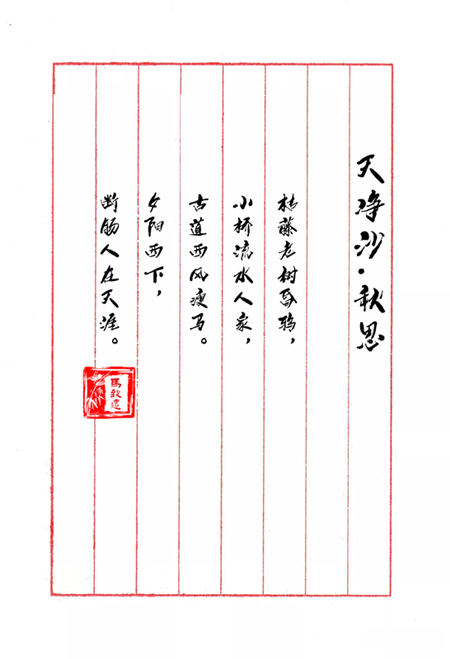 天净沙·秋思
枯藤老树昏鸦，
小桥流水人家，
古道西风瘦马。
夕阳西下，
断肠人在天涯。
馬致遠